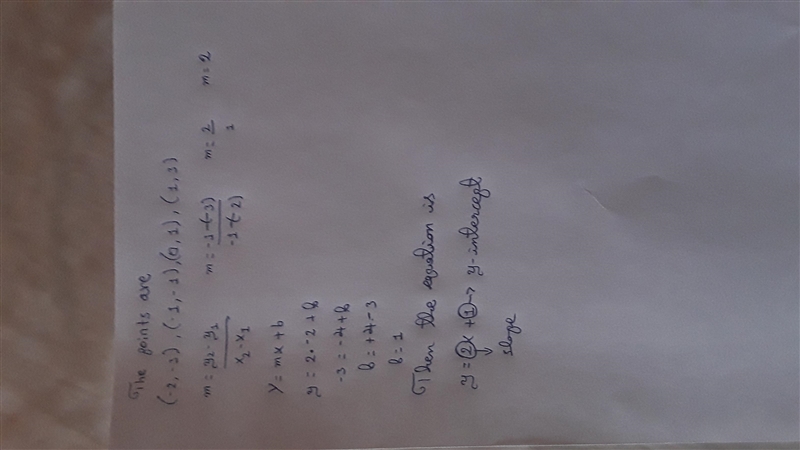 The points are
(-2,-3), (-1,-1), (0,1), (1,3)
m = y₂ - y₁ / x₂ - x₁ m = -1-(-3) / -1-(-2) m = 2 / 1 m = 2
y = mx + b
y = 2·-2 + b
-3 = -4 + b
b = +4 - 3
b = 1
Then the equation is
y = 2x + 1 → y-intercept
slope